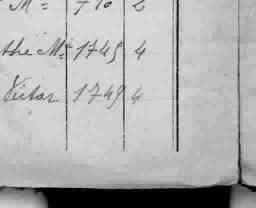 M=
the M= 1745 4
Victor 1749 4